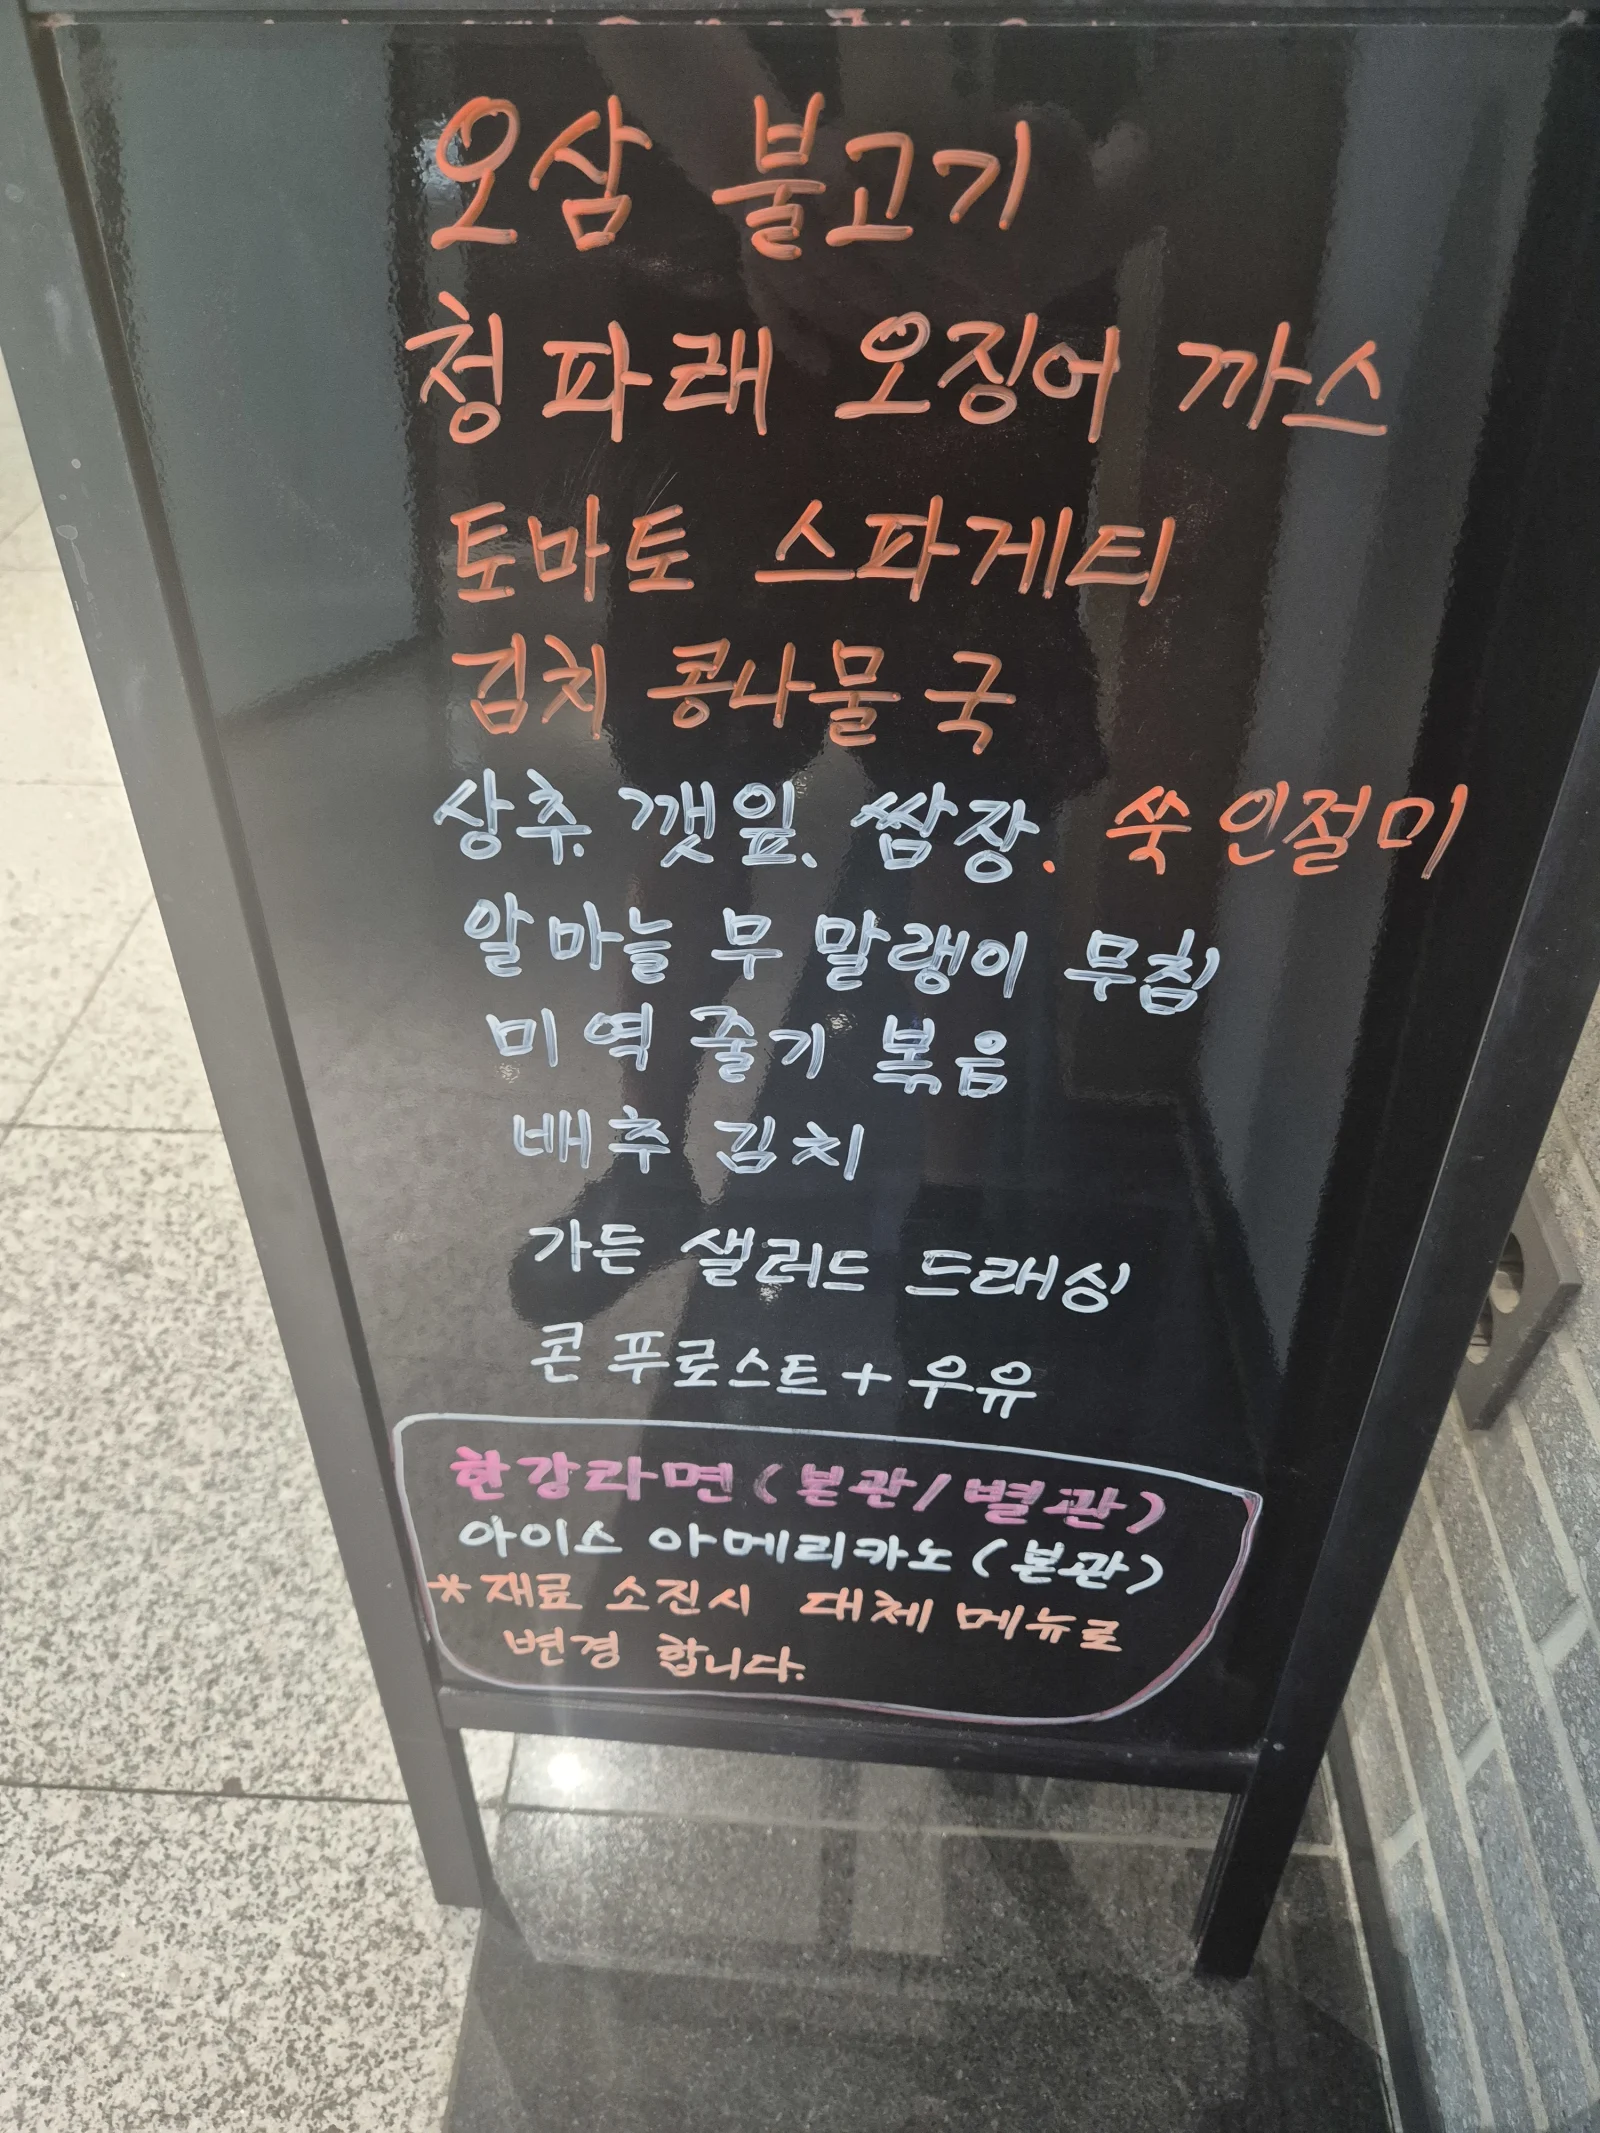 오삼 불고기
청파래 오징어 까스
토마토 스파게티
김치 콩나물 국
상추. 깻잎. 쌈장. 쑥 인절미
알마늘 무 말랭이 무침
미역 줄기 볶음
배추 김치
가든 샐러드 드래싱
콘 푸로스트 + 우유
한강라면 (본관/별관)
아이스 아메리카노 (본관)
* 재료 소진시 대체 메뉴로
변경 합니다.